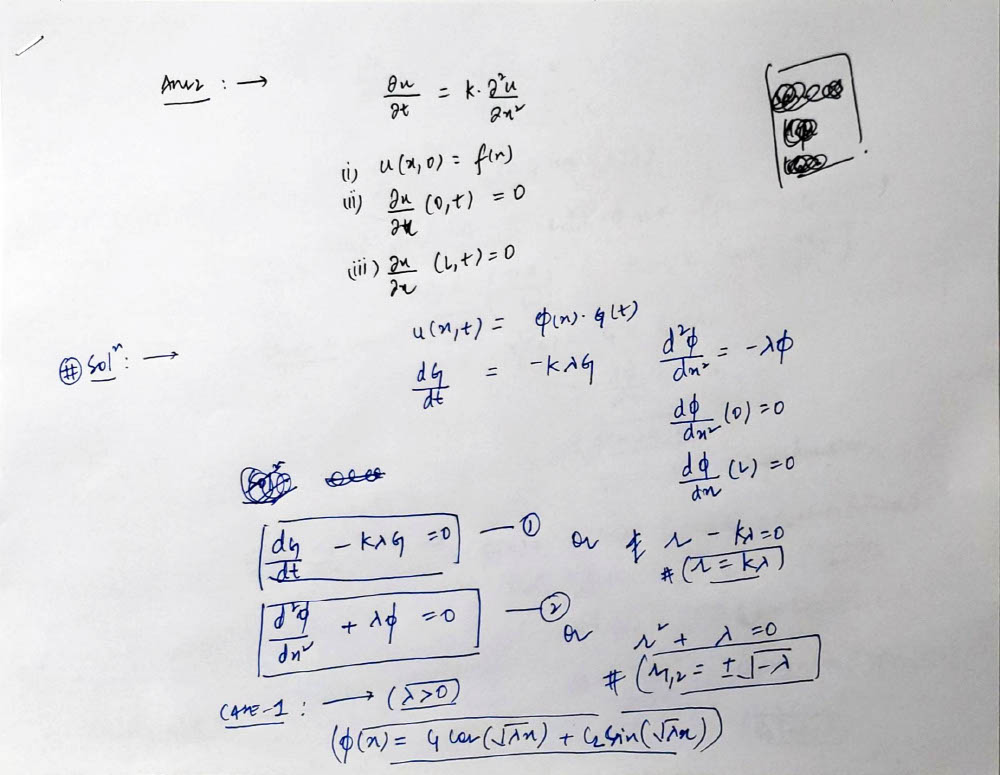 Ans2 : →
∂u/∂t = k. ∂²u/∂x²
(i) u(x,0) = f(x)
(ii) ∂u/∂x (0,t) = 0
(iii) ∂u/∂x (L,t) = 0
# Solⁿ : →
u(x,t) = φ(x)· G(t)
dG/dt = -kλG d²φ/dx² = -λφ
dφ/dx² (0) = 0
dφ/dx (L) = 0
dG/dt - kλG = 0 — ① or r - kλ = 0
# (r = kλ)
d²φ/dx² + λφ = 0 — ② or r² + λ = 0
# (r1,2 = ±√-λ)
CASE-1 : → (λ>0)
(φ(x) = C1 cos(√λx) + C2 sin(√λx))